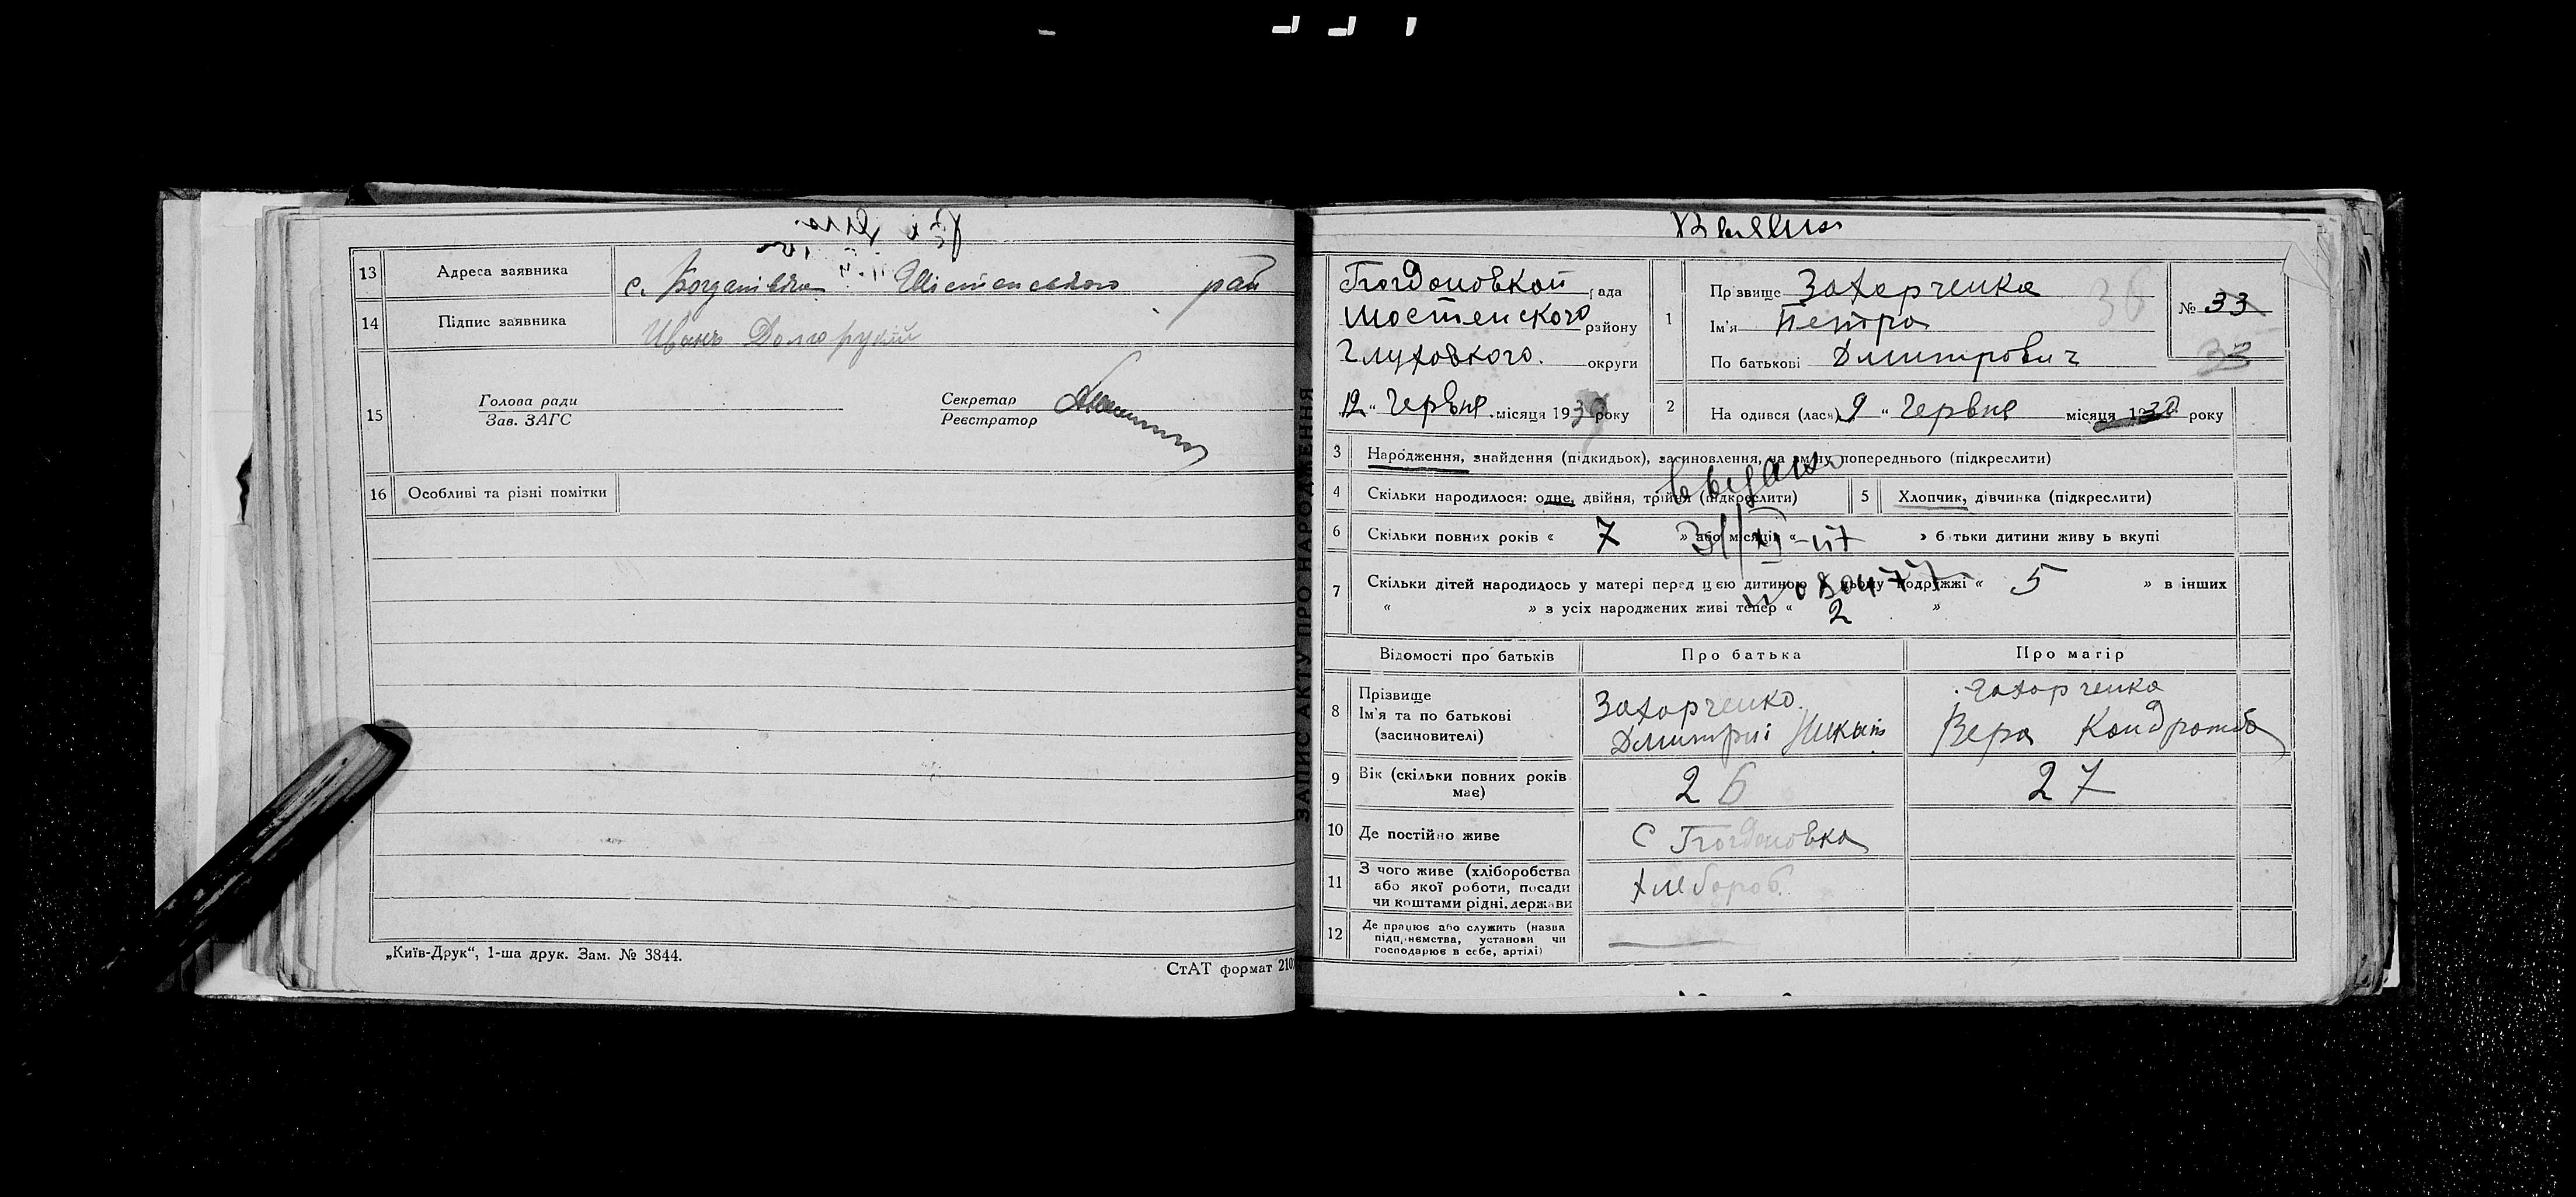 13 Адреса заявника с. Богданівка Шістенського рай
14 Підпис заявника Иванъ Долгорукий
15 Голова ради
Зав. ЗАГС
Секретар
Реєстратор
16 Особливі та різні помітки
„Київ-Друк“, 1-ша друк. Зам. № 3844.
СтАТ формат 210
ЗАПИС АКТУ ПРО НАРОДЖЕННЯ
Богдоновкой рада
Шостенского району
Глуховкого. округи
12 „ Червня місяця 1930 року
1 Прізвище Захарченко
Ім'я Петро
По батькові Дмитрович
36
№ 33
33
2 На одився (лася) 9 „ Червня місяця 1930 року
3 Народження, знайдення (підкидьох), засиновлення, на зміну попереднього (підкреслити)
4 Скільки народилося: одне, двійня, трійня (підкреслити)
5 Хлопчик, дівчинка (підкреслити)
6 Скільки повних років « 7 » або місяців « » батьки дитини живуть вкупі
7 Скільки дітей народилось у матері перед цією дитиною в цьому подружжі « 5 » в інших
« » з усіх народжених живі тепер « 2 »
Відомості про батьків Про батька Про матір
8 Прізвище
Ім'я та по батькові
(засиновителі)
Захарченко
Дмитрий
Захарченко
Вера
9 Вік (скільки повних років
має)
26
27
10 Де постійно живе С Богдоновка
11 З чого живе (хліборобства
або якої роботи, посади
чи коштами рідні, держави
хлебороб
12 Де працює або служить (назва
підприємства, установи чи
господарює в себе, артілі)